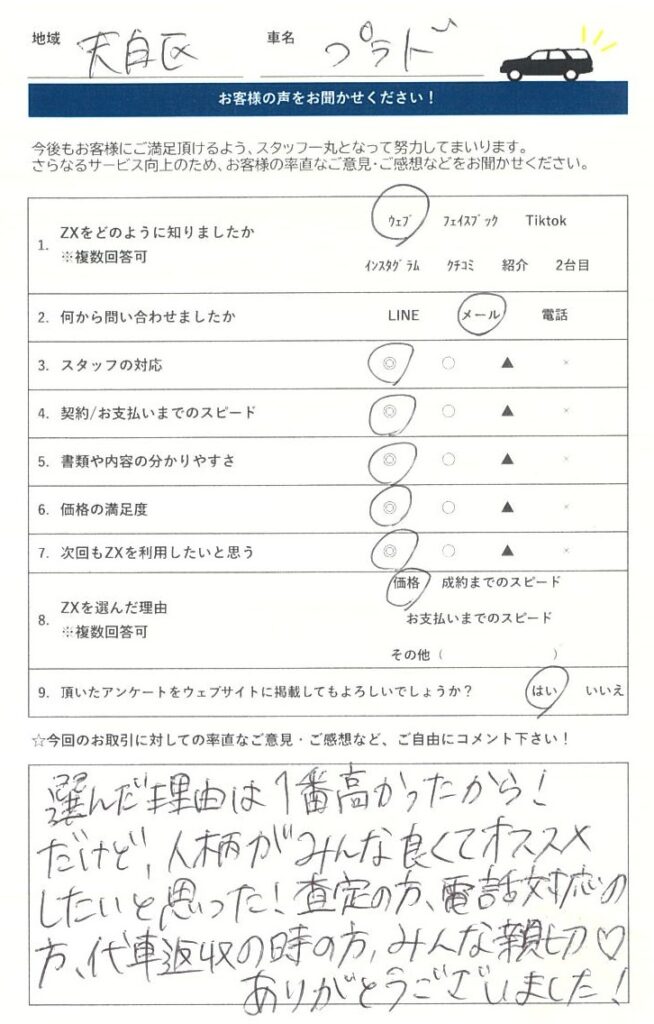 地域 天白区 車名 プラド
お客様の声をお聞かせください！
今後もお客様にご満足頂けるよう、スタッフ一丸となって努力してまいります。
さらなるサービス向上のため、お客様の率直なご意見・ご感想などをお聞かせください。
1. ZXをどのように知りましたか
※複数回答可
ウェブ ﾌｪｲｽﾌﾞｯｸ Tiktok
ｲﾝｽﾀｸﾞﾗﾑ ｸﾁｺﾐ 紹介 2台目
2. 何から問い合わせましたか LINE メール 電話
3. スタッフの対応 ◎ ○ ▲ ×
4. 契約/お支払いまでのスピード ◎ ○ ▲ ×
5. 書類や内容の分かりやすさ ◎ ○ ▲ ×
6. 価格の満足度 ◎ ○ ▲ ×
7. 次回もZXを利用したいと思う ◎ ○ ▲ ×
8. ZXを選んだ理由
※複数回答可
価格 成約までのスピード
お支払いまでのスピード
その他（ ）
9. 頂いたアンケートをウェブサイトに掲載してもよろしいでしょうか？ はい いいえ
☆今回のお取引に対しての率直なご意見・ご感想など、ご自由にコメント下さい！
選んだ理由は1番高かったから！
だけど、人柄がみんな良くてオススメ
したいと思った！査定の方、電話対応の
方、代車返収の時の方、みんな親切♡
ありがとうございました！